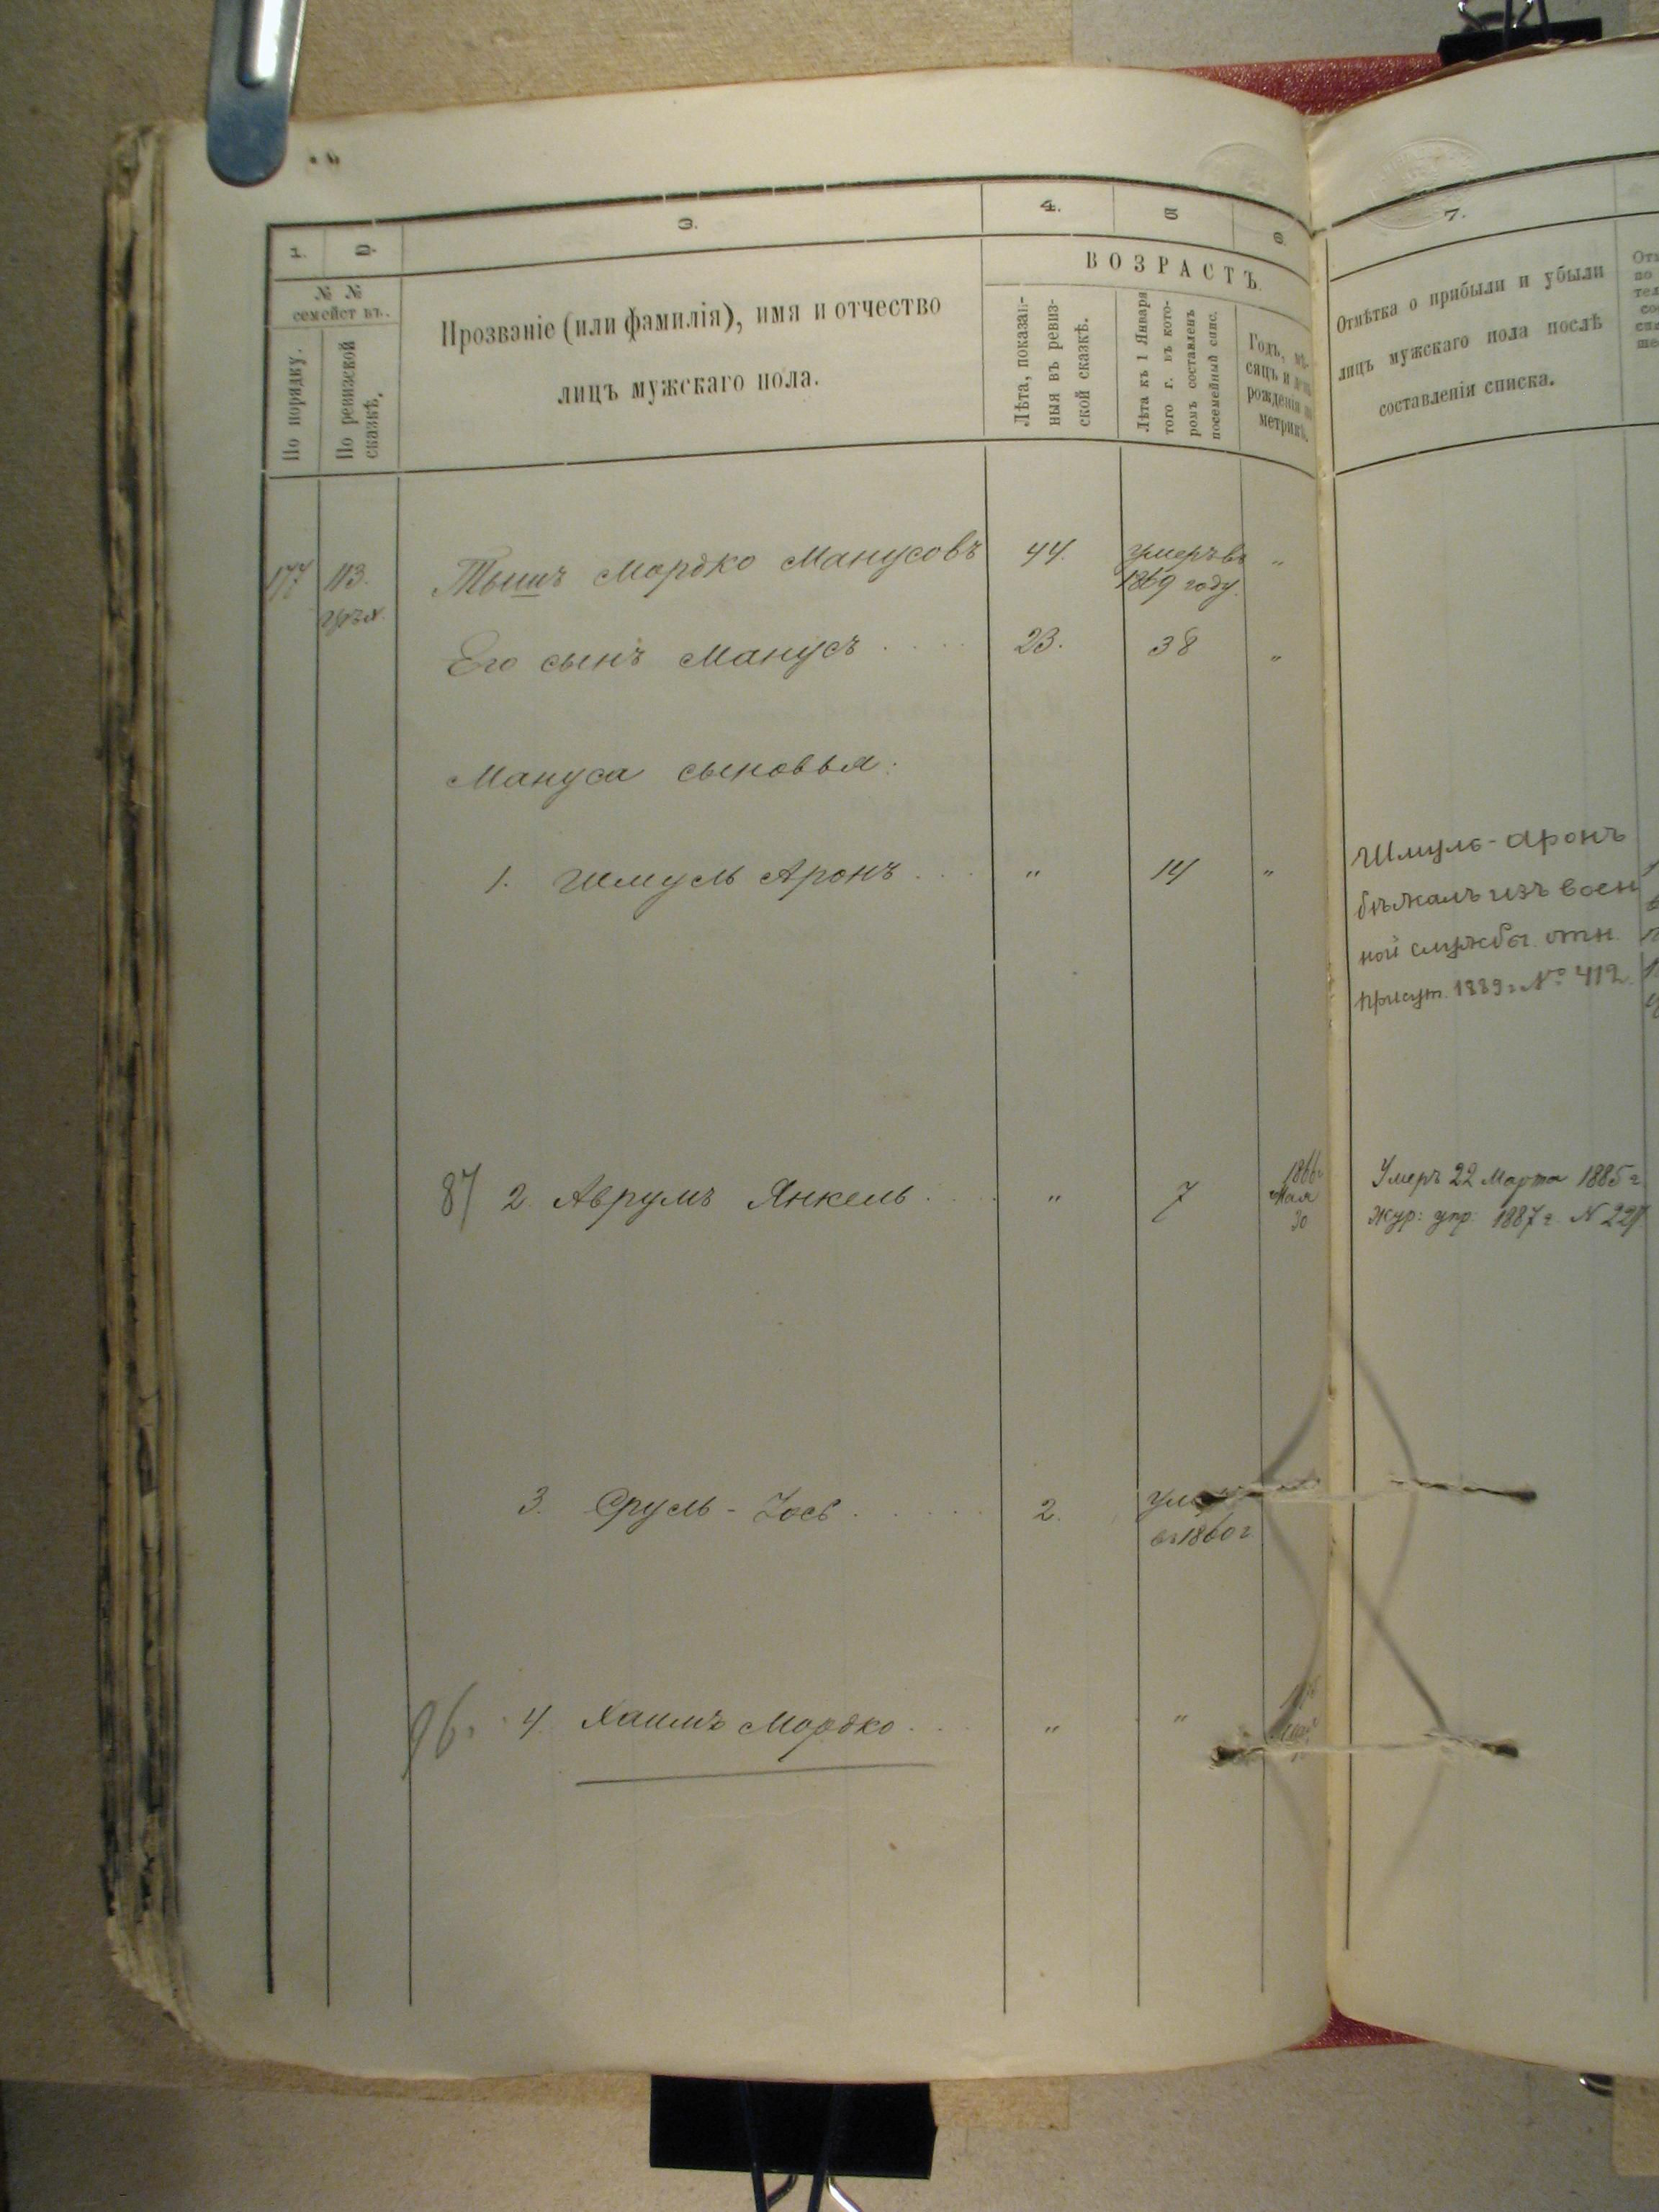 1. 2. 3. 4. 5 6. 7.
№ №
семействъ.
По порядку.
По ревизской
сказкѣ.
Прозваніе (или фамилія), имя и отчество
лицъ мужскаго пола.
ВОЗРАСТЪ.
Лѣта, показан-
ныя въ ревиз-
ской сказкѣ.
Лѣта къ 1 Января
того г. въ кото-
ромъ составленъ
посемейный спис.
Годъ, мѣ-
сяцъ и день
рожденія по
метрикѣ.
Отмѣтка о прибыли и убыли
лицъ мужскаго пола послѣ
составленія списка.
177 113. Тышъ Мордко Манусовъ 44. умеръ въ "
1869 году.
Его сынъ Манусъ . . . . 23. 38 "
Мануса сыновья:
1. Шмуль Аронъ . . . " 14 "
Шмуль-Аронъ
бѣжалъ изъ воен
ной службы. отн.
присут. 1889 г. № 412
87 2. Аврумъ Янкель . . . . " 7 1866 г.
Мая
30
Умеръ 22 Марта 1885 г.
Жур: упр: 1887 г. N 227.
3. Сруль-Іось . . . . . 2.
въ 1860 г.
96. 4. Хаимъ Мордко . . . " "